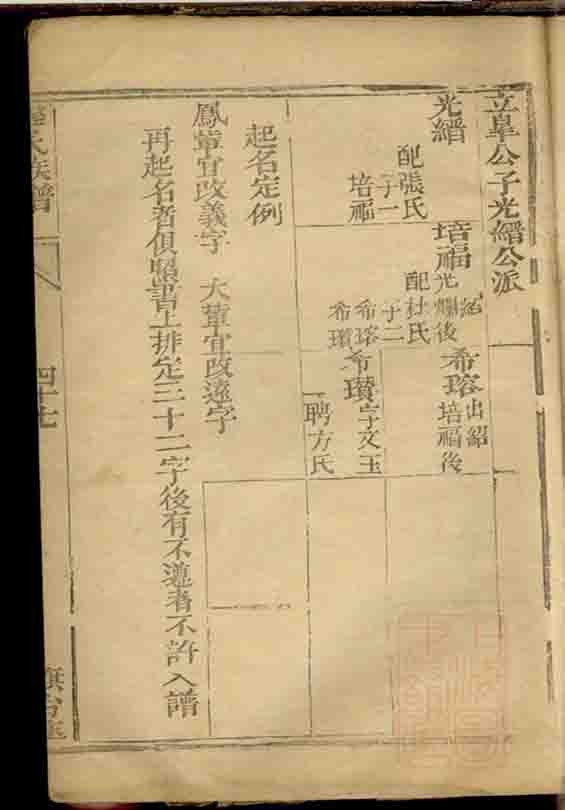 立阜公子光縉公派
光縉
配張氏
子一
培福
培福
紹
光爛後
配杜氏
子二
希瑢
希瓚
希瑢
出紹
培福後
希瓚
字文玉
聘方氏
起名定例
鳳輩宜改義字 大輩宜改遠字
再起名者俱照書上排定三十二字後有不遵者不許入譜
氏族譜
四十七